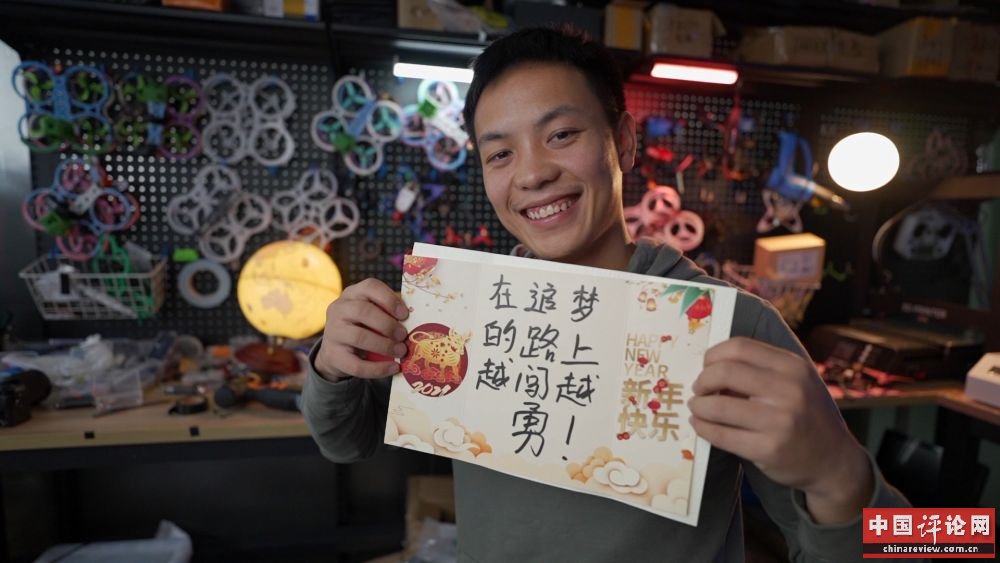 在追梦
的路上
越闯越
勇！
2021
HAPPY
NEW
YEAR
新年
快乐
中国评论网
chinareview.com.cn